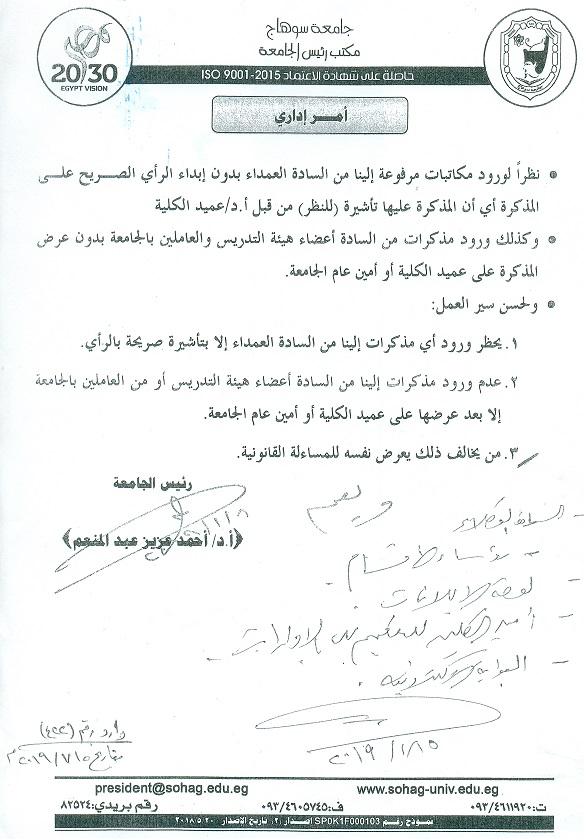 جامعة سوهاج
مكتب رئيس الجامعة
حاصلة على شهادة الاعتماد ISO 9001-2015
20/30
EGYPT VISION
أمـــر إداري
• نظراً لورود مكاتبات مرفوعة إلينا من السادة العمداء بدون إبداء الرأي الصـــريح علـــى
المذكرة أي أن المذكرة عليها تأشيرة (للنظر) من قبل أ.د/عميد الكلية
• وكذلك ورود مذكرات من السادة أعضاء هيئة التدريس والعاملين بالجامعة بدون عرض
المذكرة على عميد الكلية أو أمين عام الجامعة.
• ولحسن سير العمل:
١. يحظر ورود أي مذكرات إلينا من السادة العمداء إلا بتأشيرة صريحة بالرأي.
٢. عدم ورود مذكرات إلينا من السادة أعضاء هيئة التدريس أو من العاملين بالجامعة
إلا بعد عرضها على عميد الكلية أو أمين عام الجامعة.
٣. من يخالف ذلك يعرض نفسه للمساءلة القانونية.
رئيس الجامعة
﴿أ.د/ أحمد عزيز عبد المنعم﴾
- السادة الوكلاء
- رؤساء الأقسام
لوحة الإعلانات
- أمين الكلية
- البوابة الإلكترونية
وارد رقم (٤٢٢)
president@sohag.edu.eg
www.sohag-univ.edu.eg
ت: ٠٩٣/٤٦١١٩٢٠
ف: ٠٩٣/٤٦٠٥٧٤٥
رقم بريدي: ٨٢٥٢٤
نموذج رقم SP0K1F000103 اصدار ٢، تاريخ الاصدار ٢٠١٨،٥،٢٠